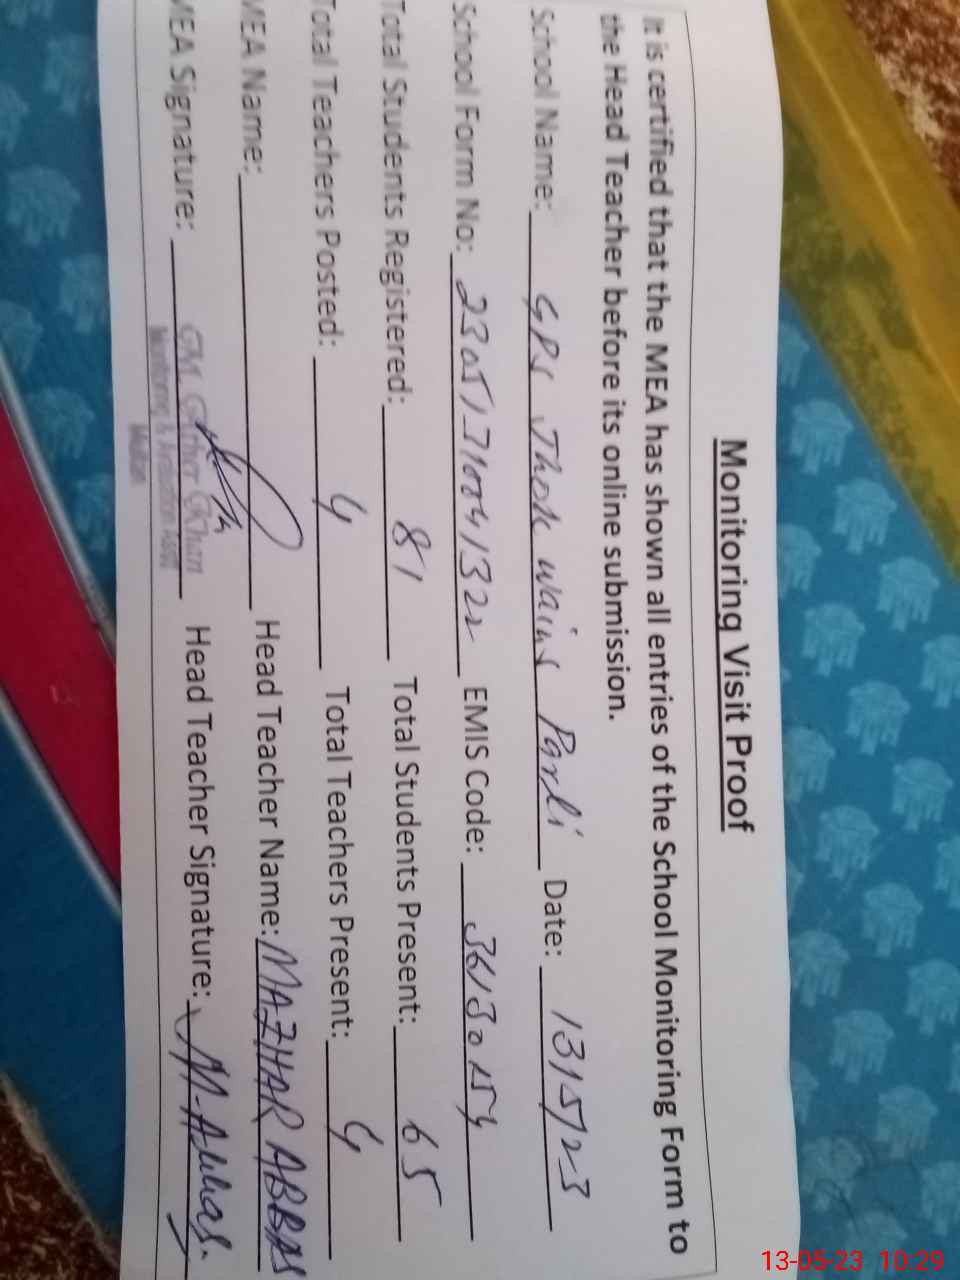 Monitoring Visit Proof
It is certified that the MEA has shown all entries of the School Monitoring Form to
the Head Teacher before its online submission.
School Name: GPS Thok wains Parli Date: 13/5/23
School Form No: EMIS Code: 36130154
Total Students Registered: 81 Total Students Present: 65
Total Teachers Posted: 4 Total Teachers Present: 4
MEA Name: Head Teacher Name: MAZHAR ABBAS
MEA Signature: Khan Head Teacher Signature: M. Abbas.
Monitoring &
Multan
13-05-23 10:29